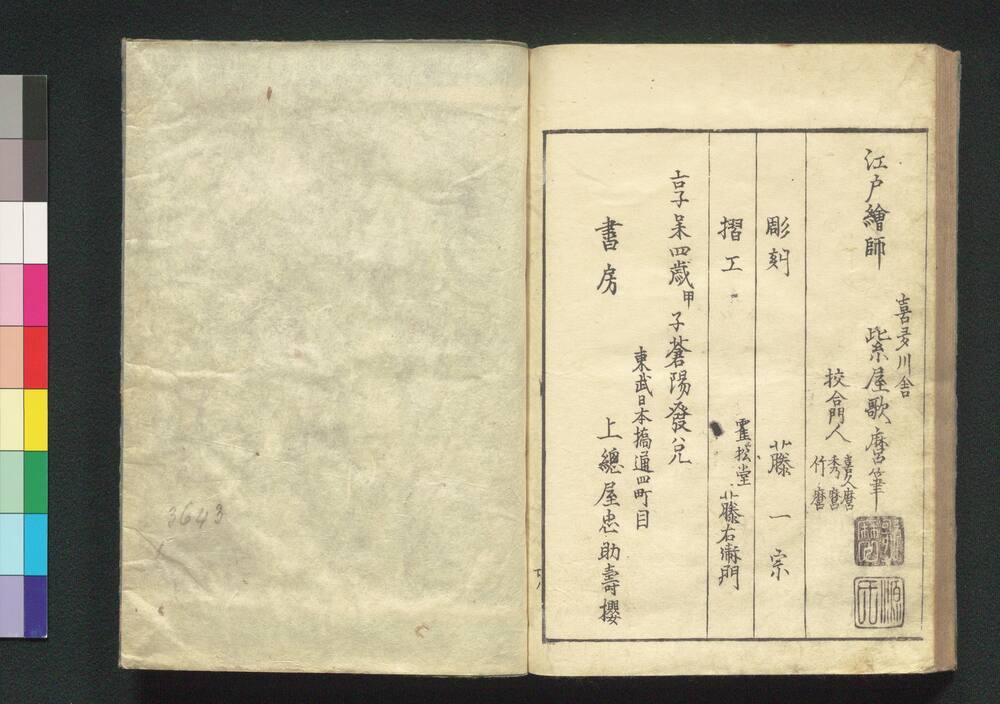 江戸繪師
喜多川舎
紫屋歌麿筆
校合門人
喜久麿
秀麿
竹麿
彫刻 藤一宗
摺工 霍松堂 藤右衛門
吉子呆四歳甲子蒼陽發兌
東武日本橋通四町目
書房 上總屋忠助壽櫻
3643